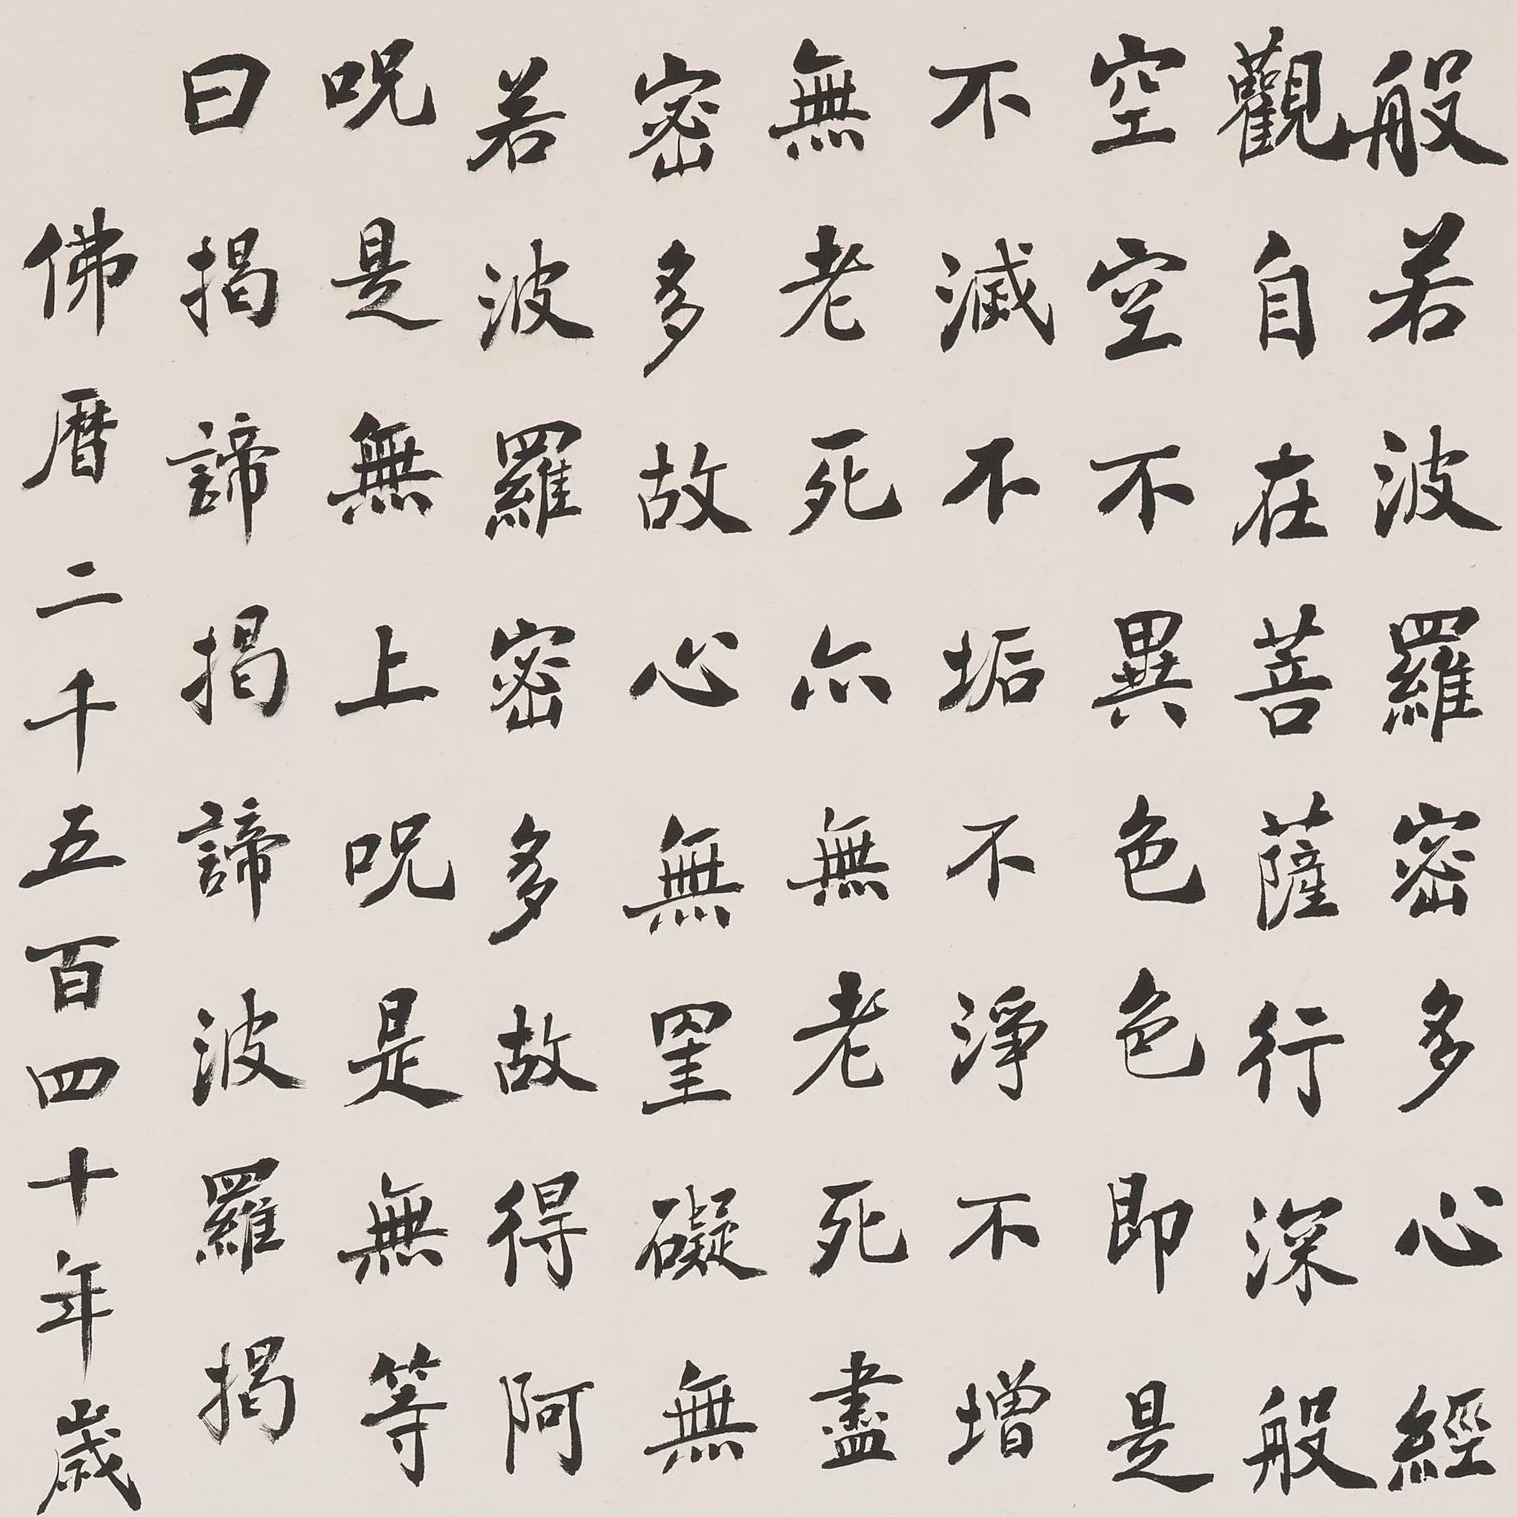 般若波羅密多心經
觀自在菩薩行深般
空空不異色色即是
不滅不垢不淨不增
無老死亦無老死盡
密多故心無罣礙無
若波羅密多故得阿
呪是無上呪是無等
曰揭諦揭諦波羅揭
佛曆二千五百四十年歲